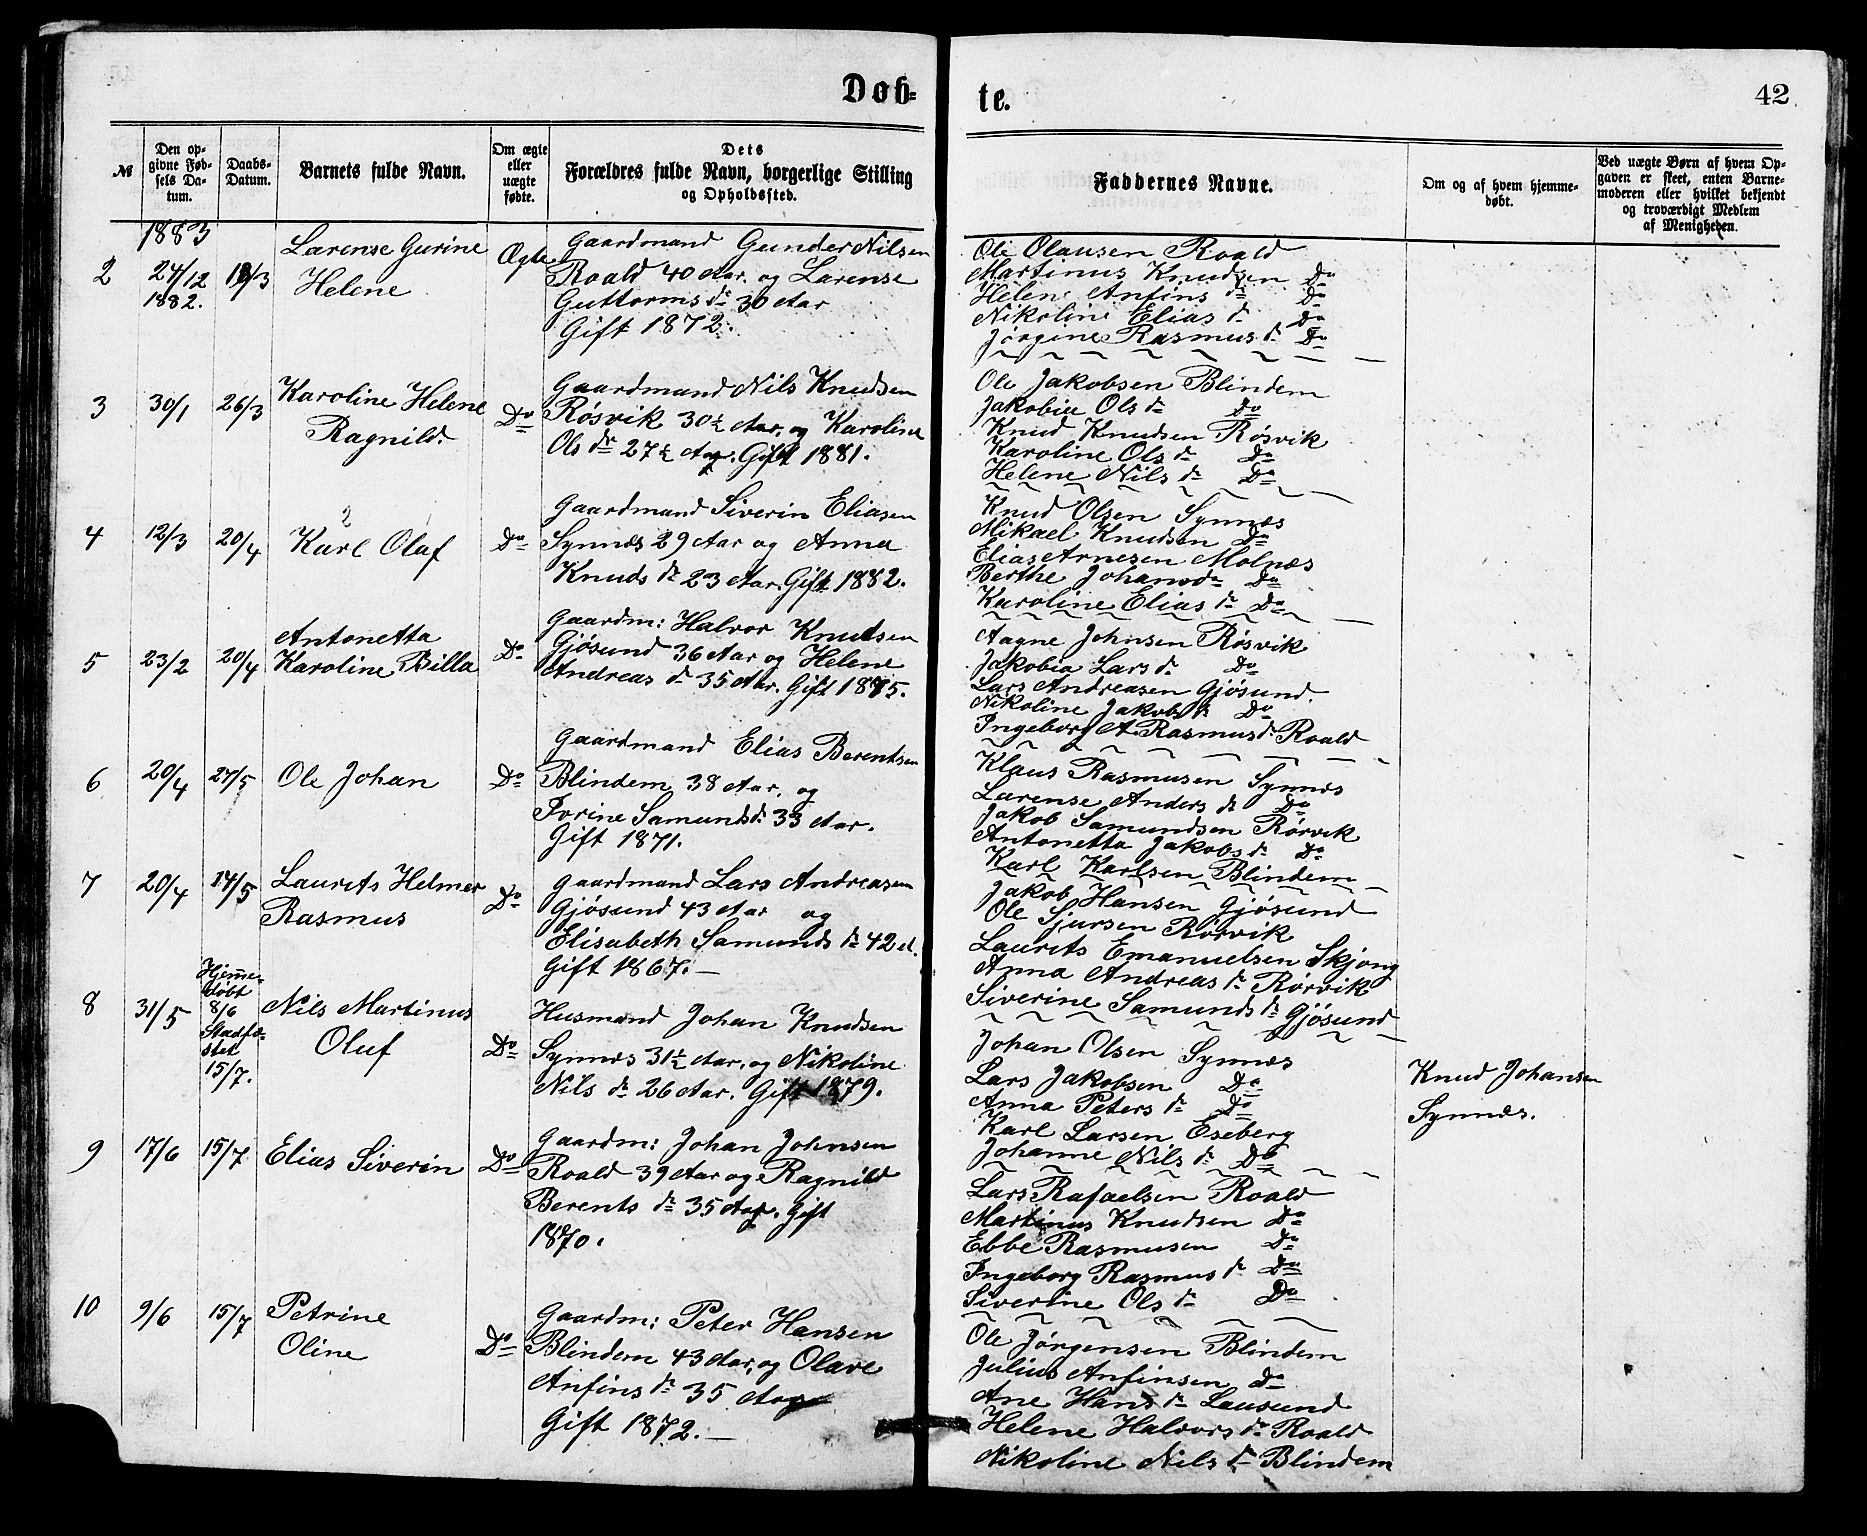 Døb=
te.
42
№
Den op-
givne Fød-
sels Da-
tum.
Daabs-
Datum.
Barnets fulde Navn.
Om ægte
eller
uægte
fødte.
Dets
Forældres fulde Navn, borgerlige Stilling
og Opholdssted.
Faddernes Navne.
Om og af hvem hjemme-
døbt.
Ved uægte Børn af hvem Op-
gaven er skeet, enten Barne-
moderen eller hvilket bekjendt
og troværdigt Medlem
af Menigheden.
1883
2
24/12
1882.
Larense Gurine
Helene
Ægte
Gaardmand Gunder Nilsen
Roald 40 Aar. og Larense
Guttorms dr 30 Aar
Gift 1872.
Ole Olausen Roald
Martinus Knudsen Do
Helene Anfins dr Do
Nikoline Elias dr Do
Jørgine Rasmus dr Do
3
30/1
26/3
Karoline Helene
Ragnild.
Do
Gaardmand Nils Knudsen
Røsvik 30½ Aar, og Karoline
Ols dr 27½ Aar. Gift 1881.
Ole Jakobsen Blindem
Jakobia Ols dr Do
Knud Knudsen Røsvik
Karoline Ols dr Do
Helene Nils dr Do
4
12/3
20/4
2
Karl Olaf
Do
Gaardmand Siverin Eliasen
Synnæs 29 Aar og Anna
Knuds dr 23 Aar. Gift 1882.
Knud Olsen Synnæs
Mikael Knudsen Do
Elias Arnesen Molnæs
Berthe Johans dr Do
Karoline Elias dr Do
5
23/2
20/4
Antonetta
Karoline Billa
Do
Gaardm: Halvor Knudsen
Gjøsund 36 Aar og Helene
Andreas dr 35 Aar. Gift 1875.
Aagne Johnsen Røsvik
Jakobia Lars dr Do
Lars Andreasen Gjøsund.
Nikoline Jakobs dr Do
Ingeborg A. Rasmus dr Roald
6
20/4
27/5
Ole Johan
Do
Gaardmand Elias Berentsen
Blindem 38 Aar, og
Jorine Samunds dr 33 Aar.
Gift 1871.
Klaus Rasmusen Synnæs
Larense Anders dr Do
Jakob Samundsen Rørvik
Antonetta Jakobs dr Do
Karl Karlsen Blindem
7
20/4
14/5
Laurits Helmer
Rasmus
Do
Gaardmand Lars Andreasen
Gjøsund 43 Aar og
Elisabeth Samunds dr 42 A.
Gift 1867.
Jakob Hansen Gjøsund
Ole Sjursen Rørvik
Laurits Emanuelsen Skjong
Anna Andreas dr Rørvik
Siverine Samunds dr Gjøsund
8
31/5
Hjemme-
døbt
8/6
Stadfæ-
stet
15/7.
Nils Martinus
Oluf
Do
Husmand Johan Knudsen
Synnæs 31½ Aar, og Nikoline
Nils dr 26 Aar. Gift 1879.
Johan Olsen Synnæs
Lars Jakobsen Do
Anna Peters dr Do
Karl Larsen Eseberg
Johanne Nils dr Do
Knud Johansen
Synnæs.
9
17/6
15/7
Elias Siverin
Do
Gaardm: Johan Johnsen
Roald 39 Aar og Ragnild
Berents dr 35 Aar. Gift
1870.
Lars Rafaelsen Roald
Martinus Knudsen Do
Ebbe Rasmusen Do
Ingeborg Rasmus dr Do
Siverine Ols dr Do
10
9/6
15/7
Petrine
Oline
Do
Gaardm: Peter Hansen
Blindem 43 Aar, og Olave
Anfins dr 35 Aar
Gift 1872.
Ole Jørgensen Blindem
Julius Anfinsen Do
Ane Hans dr Lausund
Helene Halvors dr Roald
Nikoline Nils dr Blindem